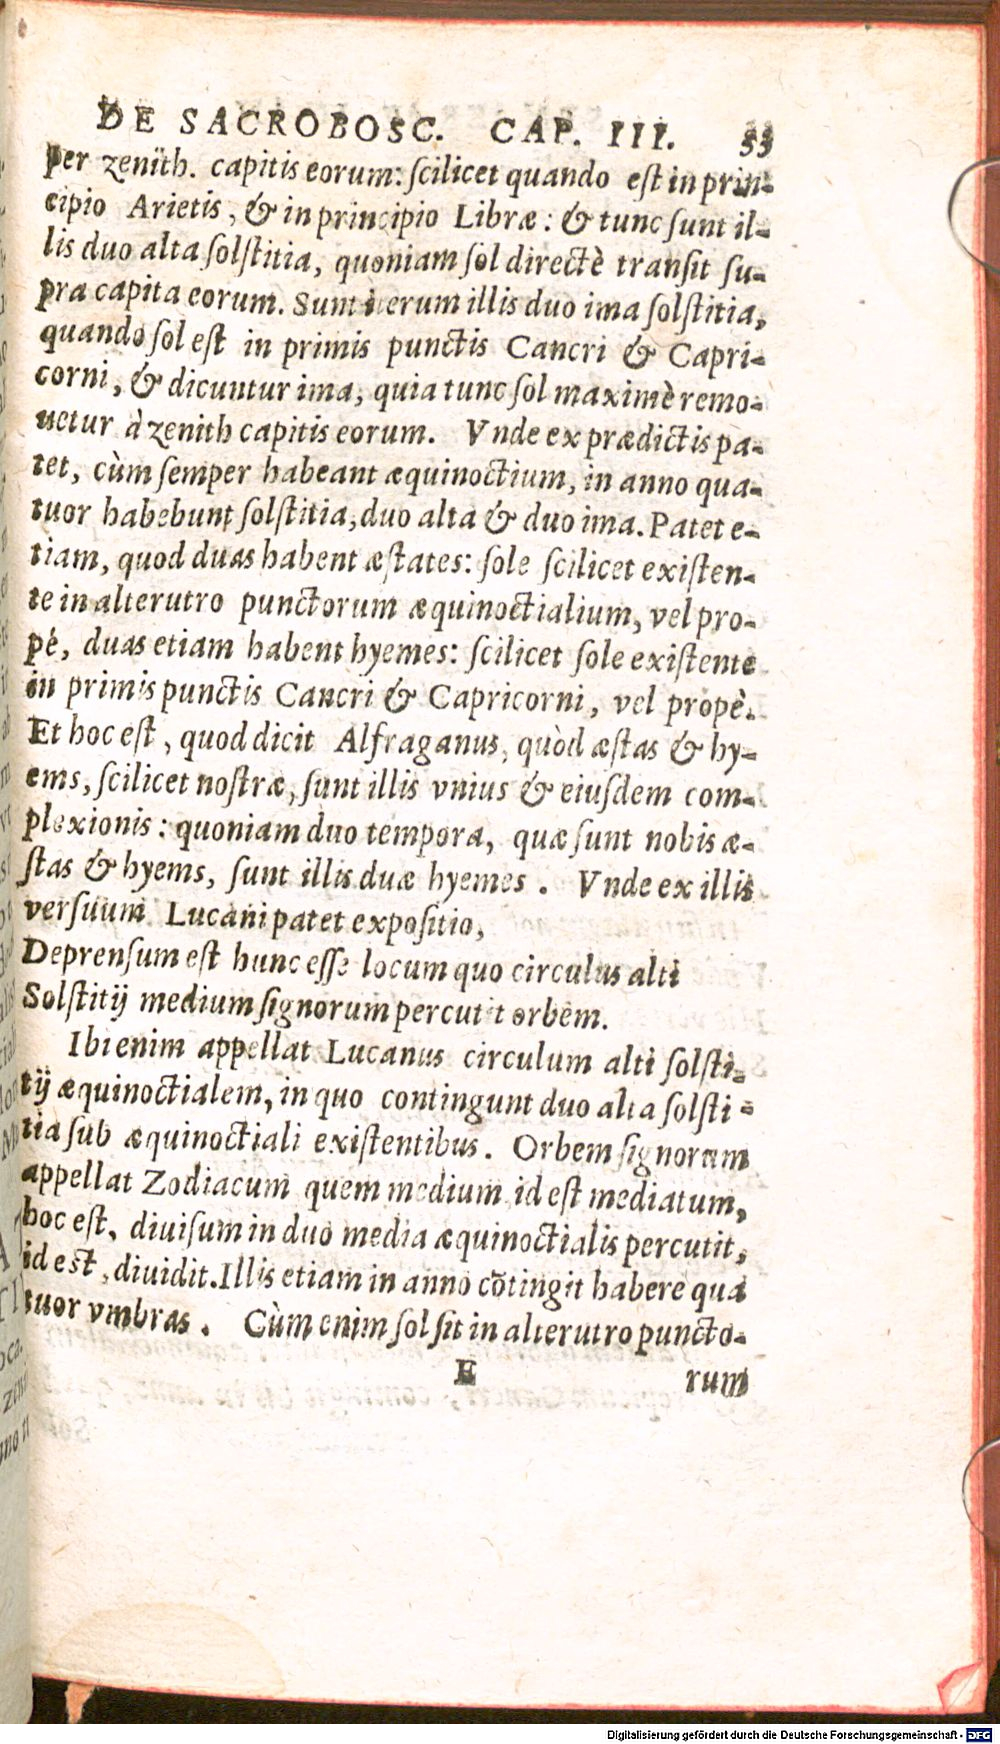 DE SACROBOSC. CAP. III. 33
per zenith. capitis eorum: ſcilicet quando est in prin-
cipio Arietis, & in principio Libræ: & tunc ſunt il-
lis duo alta ſolſtitia, quoniam ſol directè tranſit ſu-
pra capita eorum. Sunt iterum illis duo ima ſolſtitia,
quando ſol est in primis punctis Cancri & Capri-
corni, & dicuntur ima, quia tunc ſol maximè remo-
uetur à zenith capitis eorum. Vnde ex prædictis pa-
tet, cùm ſemper habeant æquinoctium, in anno qua-
tuor habebunt ſolſtitia, duo alta & duo ima. Patet e-
tiam, quod duas habent æſtates: ſole ſcilicet exiſten-
te in alterutro punctorum æquinoctialium, vel pro-
pè, duas etiam habent hyemes: ſcilicet ſole exiſtente
in primis punctis Cancri & Capricorni, vel propè.
Et hoc eſt, quod dicit Alfraganus, quòd æſtas & hy-
ems, ſcilicet noſtræ, ſunt illis vnius & eiuſdem com-
plexionis: quoniam duo tempora, quæ ſunt nobis æ-
ſtas & hyems, ſunt illis duæ hyemes. Vnde ex illis
verſuum Lucani patet expoſitio,
Deprenſum eſt hunc eſſe locum quo circulus alti
Solſtitij medium ſignorum percutit orbem.
Ibi enim appellat Lucanus circulum alti ſolſti-
tij æquinoctialem, in quo contingunt duo alta ſolſti-
tia ſub æquinoctiali exiſtentibus. Orbem ſignorum
appellat Zodiacum quem medium id eſt mediatum,
hoc eſt, diuiſum in duo media æquinoctialis percutit,
id eſt, diuidit. Illis etiam in anno cõtingit habere qua
tuor vmbras. Cùm enim ſol ſit in alterutro puncto-
E rum
Digitalisierung gefördert durch die Deutsche Forschungsgemeinschaft - DFG